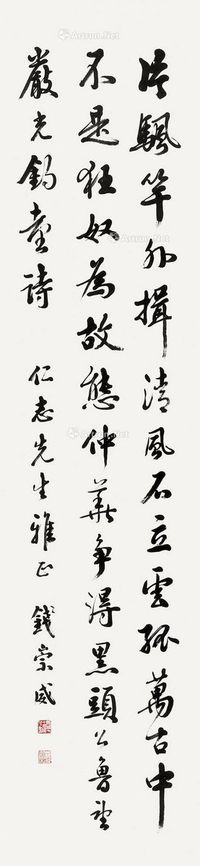 片颿竿外揖清風石立雲孤萬古中
不是狂奴為故態仲華爭得黑頭公魯望
嚴光釣臺詩 仁志先生雅正 錢崇威
Artron.Net